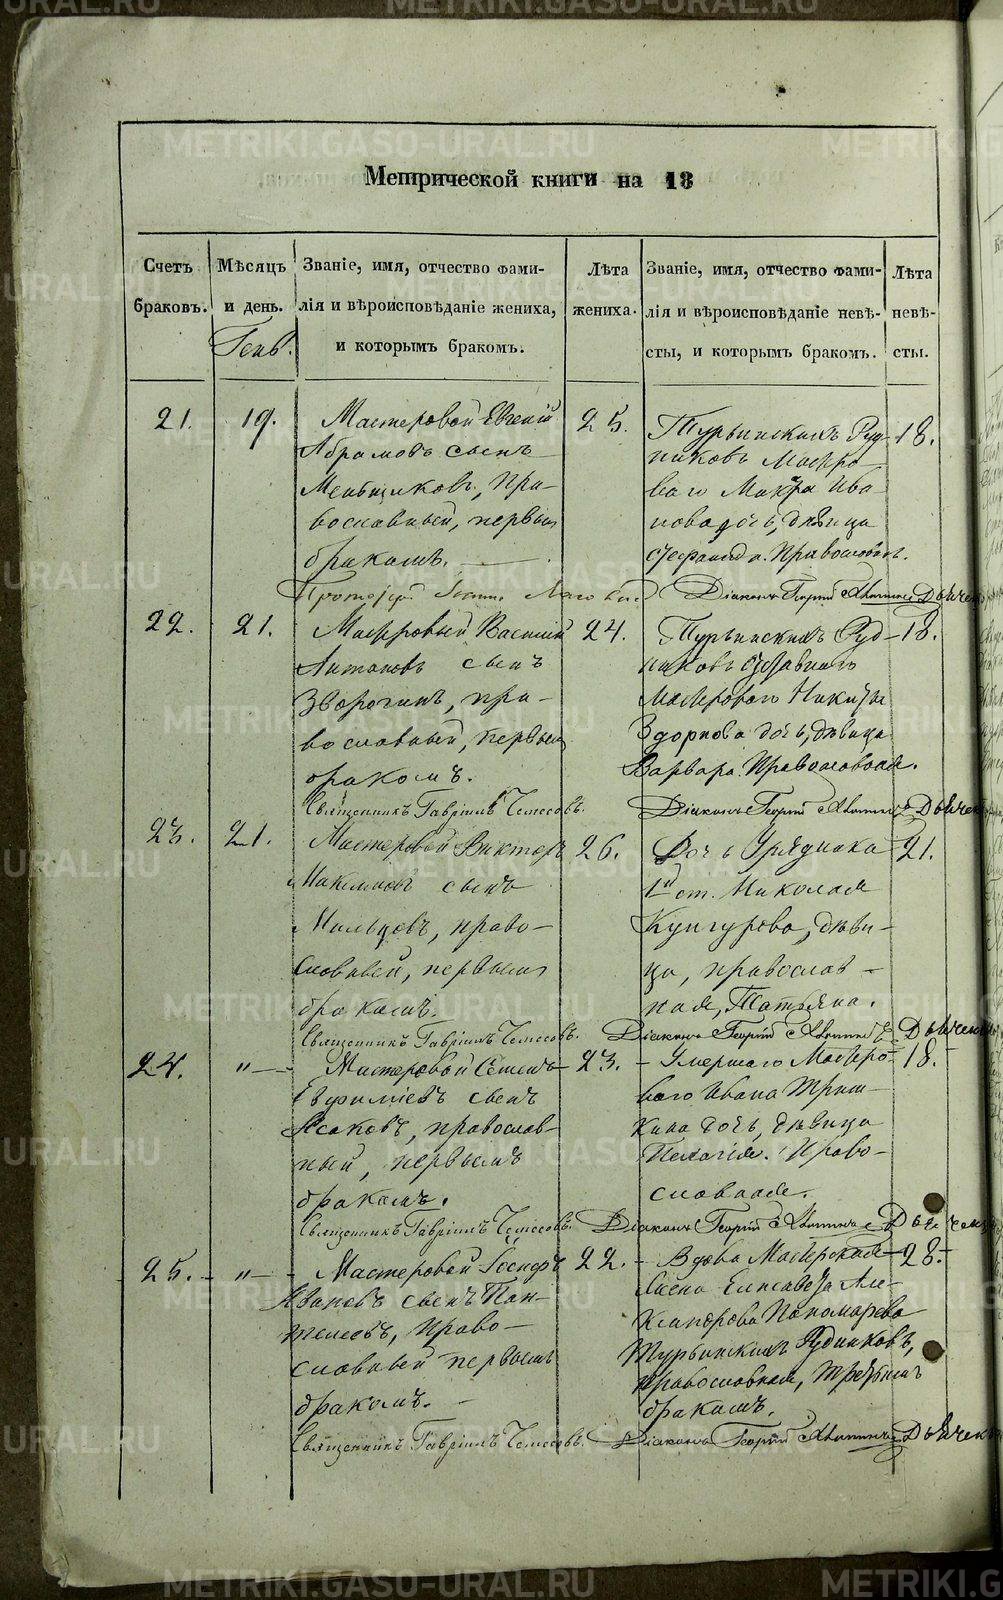 Метрической книги на 18
Счетъ браковъ.
Мѣсяцъ и день.
Званіе, имя, отчество фами-
лія и вѣроисповѣданіе жениха,
и которымъ бракомъ.
Лѣта жениха.
Званіе, имя, отчество фами-
лія и вѣроисповѣданіе невѣ-
сты, и которымъ бракомъ.
Лѣта невѣ-
сты.
Генв.
21.
19.
Мастеровой Евгеній
Абрамовъ сынъ
Меньщиковъ, Пра-
вославный, первым
бракомъ.
25.
Турьинскихъ Руд-
никовъ Мастро-
ваго Ива-
нова дочь, дѣвица
Православн.
18.
Протоіерей
Діаконъ Георгій
22.
21.
Мастровый Василій
Антоновъ сынъ
Зворогинъ, пра-
вославный, первым
бракомъ.
24.
Турьинскихъ Руд-
никовъ отставнаго
Мастероваго Никиты
дочь, дѣвица
Варвара. Православная.
18.
Священникъ Гавріилъ
Діаконъ Георгій
23.
21.
Мастеровой Викторъ
сынъ
Мальцовъ, право-
славный, первымъ
бракомъ.
26.
Дочь Урядника
1й ст. Николая
Кунгурова, дѣви-
ца, православ-
ная, Татьяна.
21.
Священникъ Гавріилъ
Діаконъ Георгій
24.
"
Мастеровой Семенъ
Евфиміевъ сынъ
Исаковъ, православ-
ный, первымъ
бракомъ.
23.
Умершаго Мастеро-
ваго Ивана Триш-
кина дочь, дѣвица
Пелагія. Право-
славная.
18.
Священникъ Гавріилъ
Діаконъ Георгій
25.
"
Мастеровой Іосифъ
Ивановъ сынъ Пан-
телеевъ, Право-
славный первымъ
бракомъ.
22.
Вдова Мастерская
жена Елисавета Але-
ксандрова Пономарева
Турьинскихъ Рудниковъ,
православная, третьимъ
бракомъ.
28.
Священникъ Гавріилъ
Діаконъ Георгій
METRIKI.GASO-URAL.RU